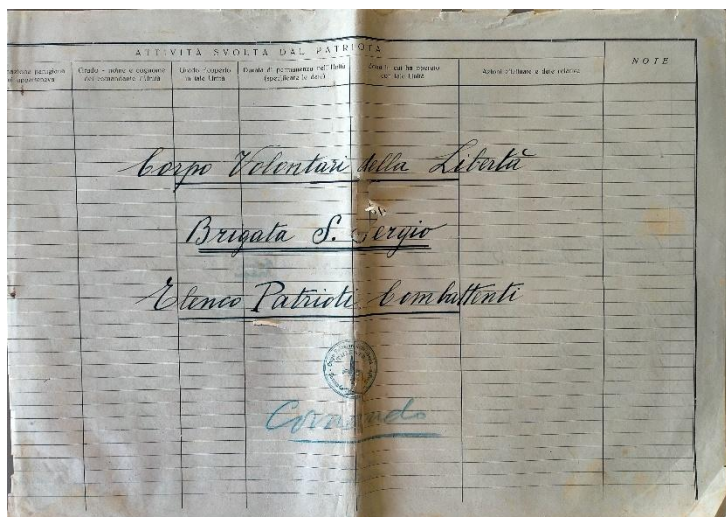 ATTIVITÀ SVOLTA DAL PATRIOTA
NOTE
Grado - nome e cognome del comandante l'Unità
Grado ricoperto in tale Unità
Durata di permanenza nell'Unità (specificare le date)
Località in cui ha operato con tale Unità
Azioni militari e date relative
Corpo Volontari della Libertà
Brigata S. Sergio
Elenco Patrioti Combattenti
Comando